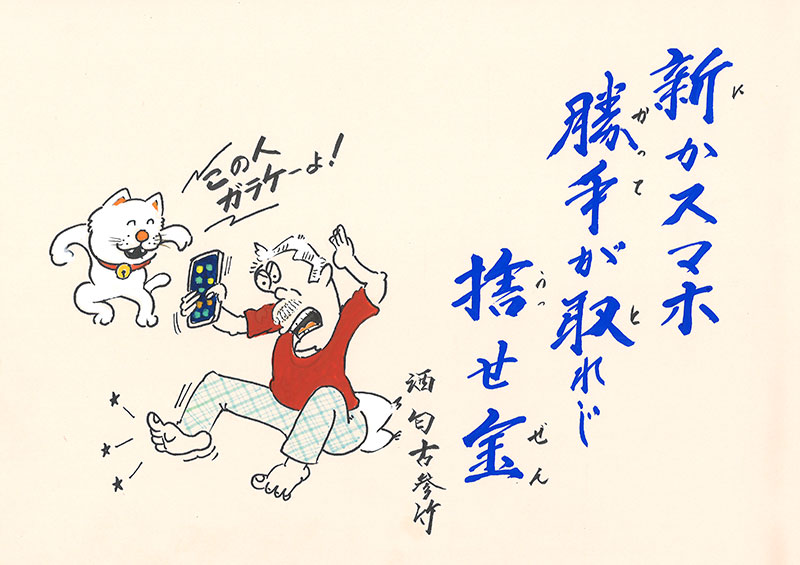 新かスマホ
に
勝手が取れじ
かって
と
捨せ金
うっ
ぜん
この人
ガラケーよ！
酒匂古参竹